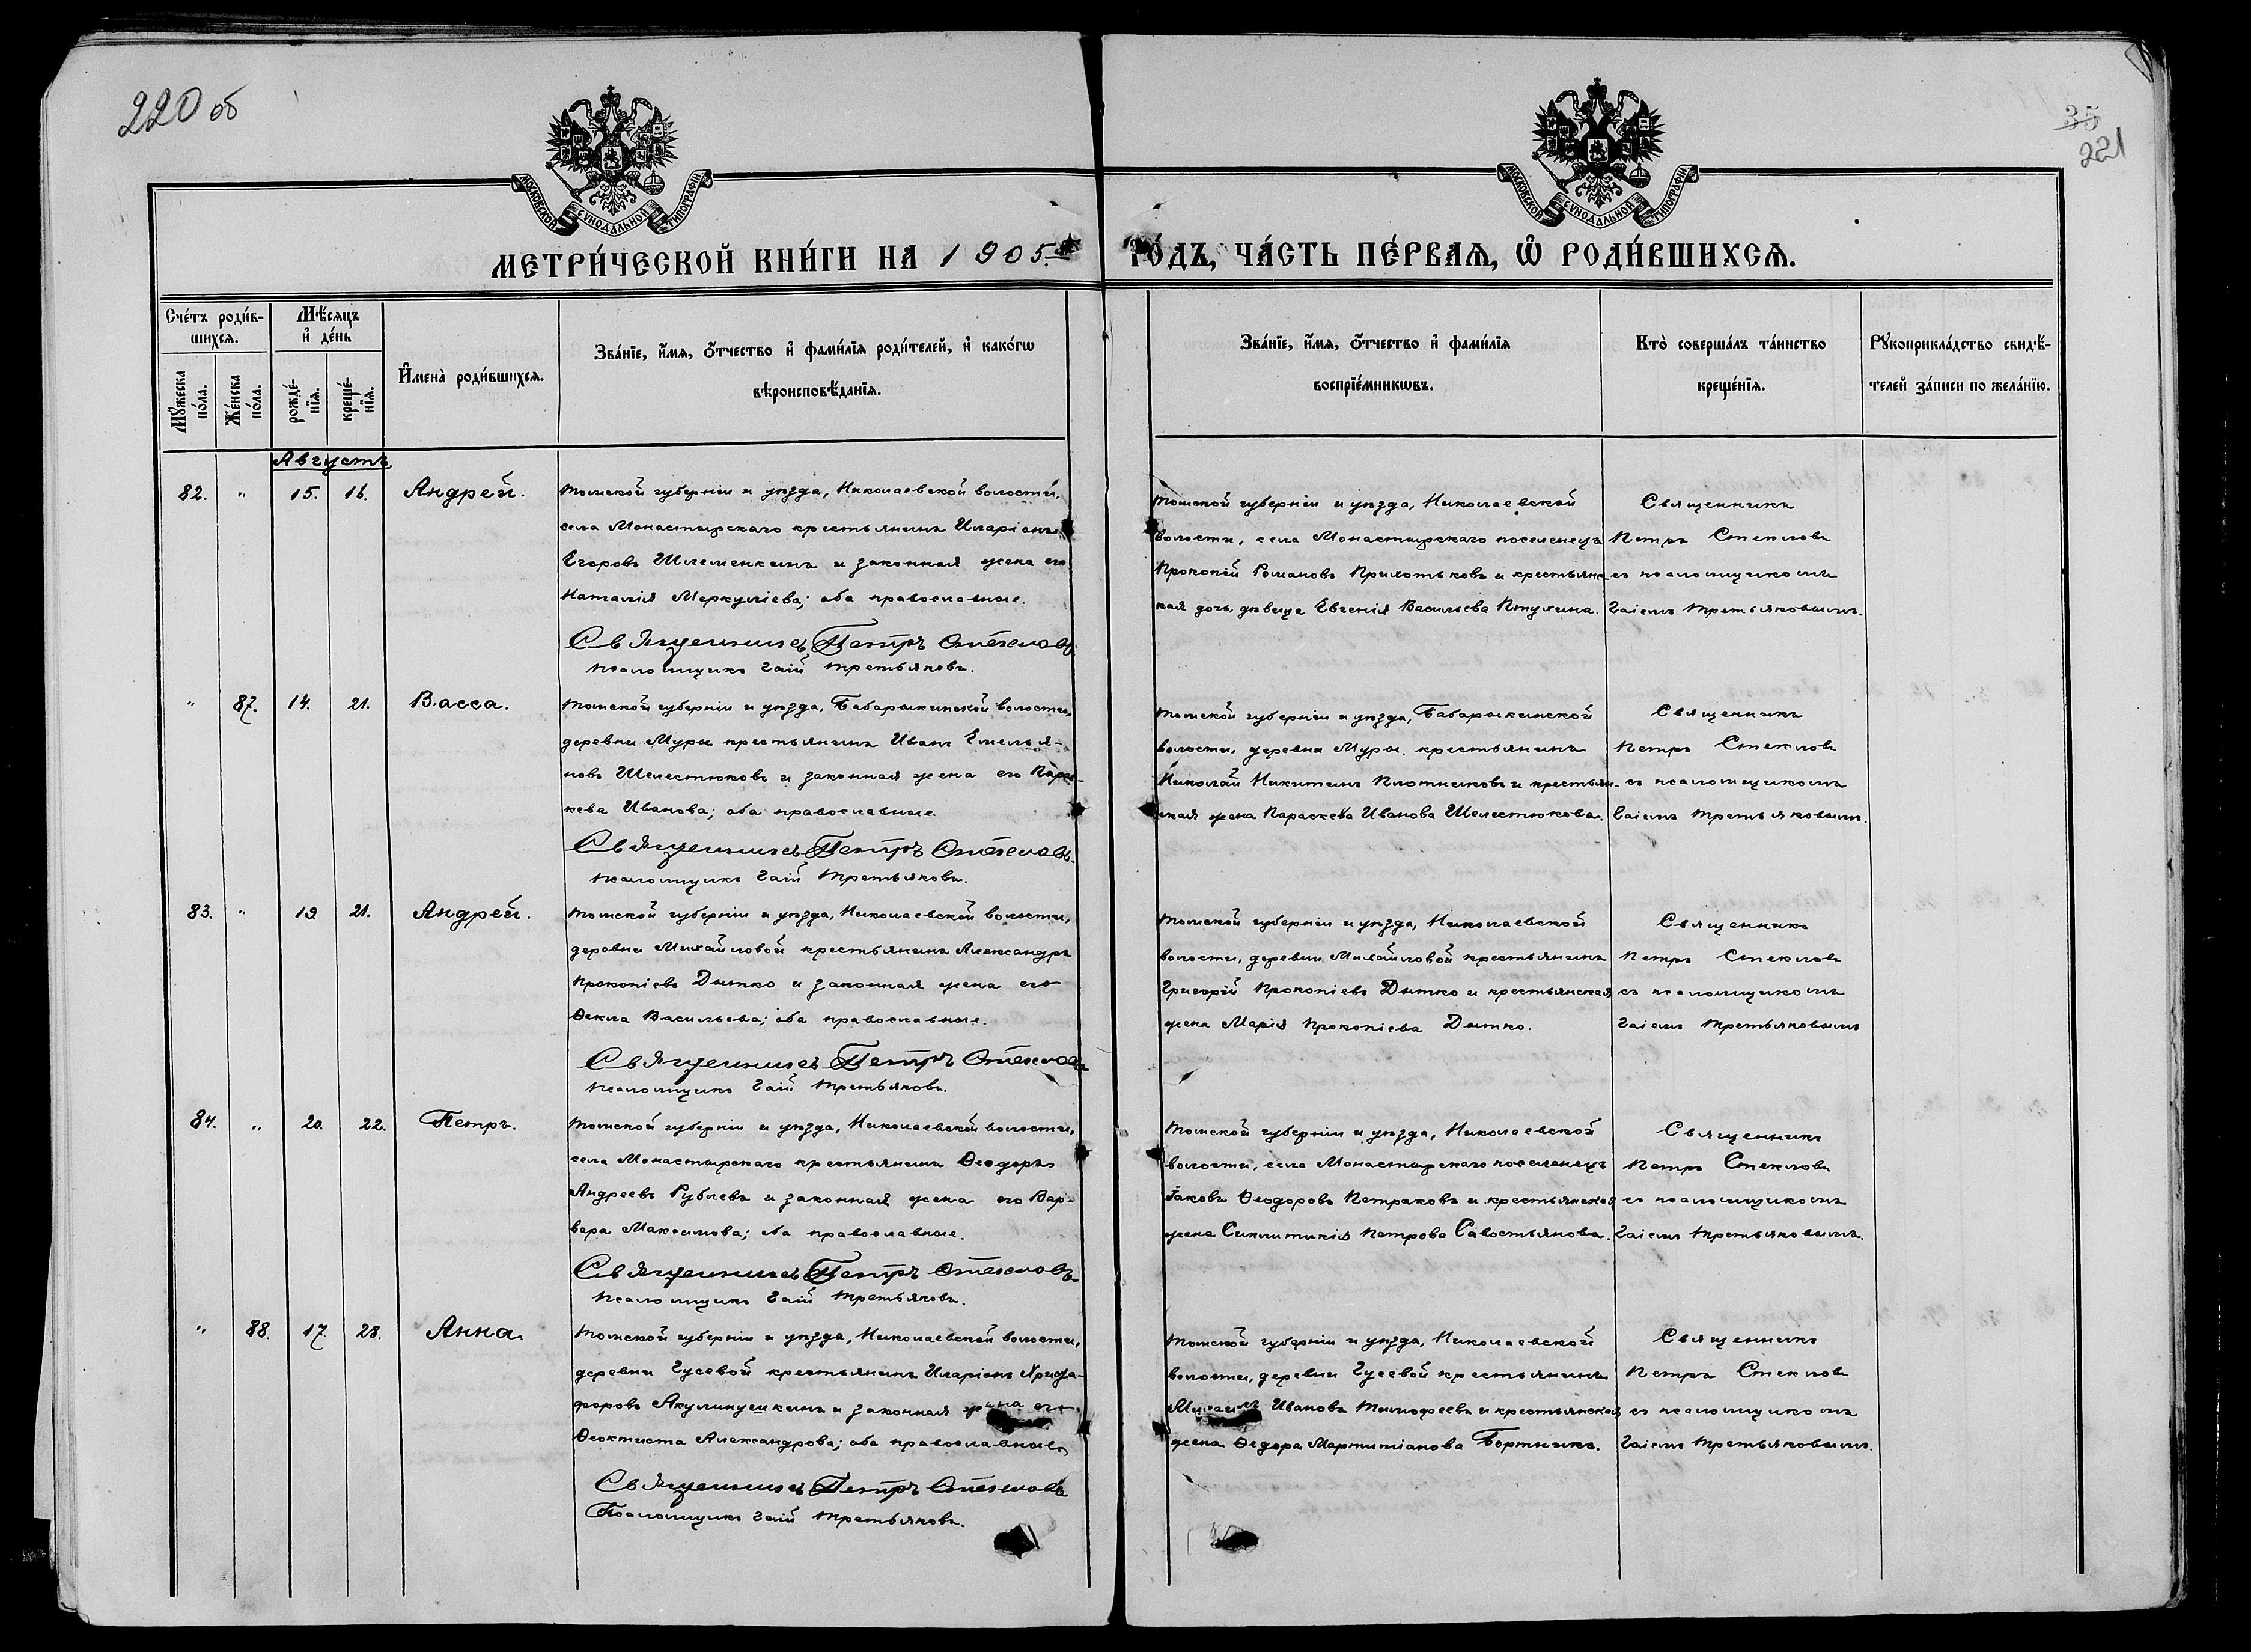 220 об
35
221
МОСКОВСКОЙ СѴНОДАЛЬНОЙ ТИПОГРАФІИ
МОСКОВСКОЙ СѴНОДАЛЬНОЙ ТИПОГРАФІИ
МЕТРИ́ЧЕСКОЙ КНИ́ГИ НА 1905й ГО́ДЪ, ЧА́СТЬ ПЕ́РВАЯ, Ѡ҆ РОДИ́ВШИХСѦ.
Сче́тъ роди́в-
шихсѧ.
Мꙋ́жеска по́ла.
Же́нска по́ла.
Мѣ́сѧцъ
и҆ де́нь
рожде́-
нїѧ.
креще́-
нїѧ.
И҆мена̀ роди́вшихсѧ.
Зва́нїе, и҆́мѧ, ѻ҆́тчество и҆ фами́лїѧ роди́телей, и҆ како́гѡ
вѣроисповѣ́данїѧ.
Зва́нїе, и҆́мѧ, ѻ҆́тчество и҆ фами́лїѧ
воспрїе́мникѡвъ.
Кто̀ соверша́лъ та́инство
креще́нїѧ.
Рꙋкоприкла́дство свидѣ́-
телей за́писи по жела́нїю.
Августъ
82. " 15. 16. Андрей.
Томской губерніи и уѣзда, Николаевской волости,
села Монастырскаго крестьянинъ Иларіонъ
Егоровъ Шлеменкинъ и законная жена его
Наталія Меркуліева; оба православные.
Священникъ Петръ Стекловъ
Псаломщикъ Гаій Третьяковъ.
Томской губерніи и уѣзда, Николаевской
волости, села Монастырскаго поселенецъ
Прокопій Романовъ Прихотьковъ и крестьянс-
кая дочь, дѣвица Евгенія Васильева Птухина.
Священникъ
Петръ Стекловъ
съ псаломщикомъ
Гаіемъ Третьяковымъ.
" 87. 14. 21. Васса.
Томской губерніи и уѣзда, Бабарыкинской волости,
деревни Муры крестьянинъ Иванъ Емелья-
новъ Шелестюковъ и законная жена его Парас-
кева Иванова; оба православные.
Священникъ Петръ Стекловъ.
Псаломщикъ Гаій Третьяковъ.
Томской губерніи и уѣзда, Бабарыкинской
волости, деревни Муры крестьянинъ
Николай Никитинъ Плотниковъ и крестьян-
ская жена Параскева Иванова Шелестюкова.
Священникъ
Петръ Стекловъ
съ псаломщикомъ
Гаіемъ Третьяковымъ.
83. " 19. 21. Андрей.
Томской губерніи и уѣзда, Николаевской волости,
деревни Михайловой крестьянинъ Александръ
Прокопіевъ Дытко и законная жена его
Ѳекла Васильева; оба православные.
Священникъ Петръ Стекловъ
Псаломщикъ Гаій Третьяковъ.
Томской губерніи и уѣзда, Николаевской
волости, деревни Михайловой крестьянинъ
Григорій Прокопіевъ Дытко и крестьянская
жена Марія Прокопіева Дытко.
Священникъ
Петръ Стекловъ
съ псаломщикомъ
Гаіемъ Третьяковымъ
84. " 20. 22. Петръ.
Томской губерніи и уѣзда, Николаевской волости,
села Монастырскаго крестьянинъ Ѳеодоръ
Андреевъ Рублевъ и законная жена его Вар-
вара Максимова; оба православные.
Священникъ Петръ Стекловъ
Псаломщикъ Гаій Третьяковъ.
Томской губерніи и уѣзда, Николаевской
волости, села Монастырскаго поселенецъ
Іаковъ Ѳеодоровъ Петраковъ и крестьянская
жена Синклитикія Петрова Савостьянова.
Священникъ
Петръ Стекловъ
съ псаломщикомъ
Гаіемъ Третьяковымъ.
" 88. 17. 28. Анна.
Томской губерніи и уѣзда, Николаевской волости,
деревни Гусевой крестьянинъ Иларіонъ Христо-
форовъ Акулинушкинъ и законная жена его
Ѳеоктиста Александрова; оба православные.
Священникъ Петръ Стекловъ
Псаломщикъ Гаій Третьяковъ.
Томской губерніи и уѣзда, Николаевской
волости, деревни Гусевой крестьянинъ
Михаилъ Ивановъ Тимофеевъ и крестьянская
жена Ѳедора Мартиніанова Бортникъ.
Священникъ
Петръ Стекловъ
съ псаломщикомъ
Гаіемъ Третьяковымъ.